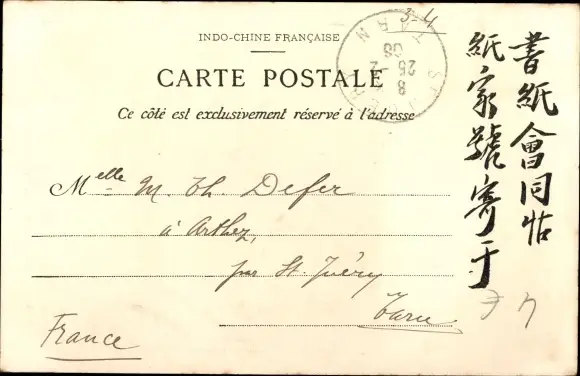 3-4
INDO-CHINE FRANÇAISE
CARTE POSTALE
Ce côté est exclusivement réservé à l'adresse
TARN
25
08
8
Melle M. Th. Defer
à Arthez,
par St. Juéry
Tarn
France
書紙會同怗
紙家號寄于